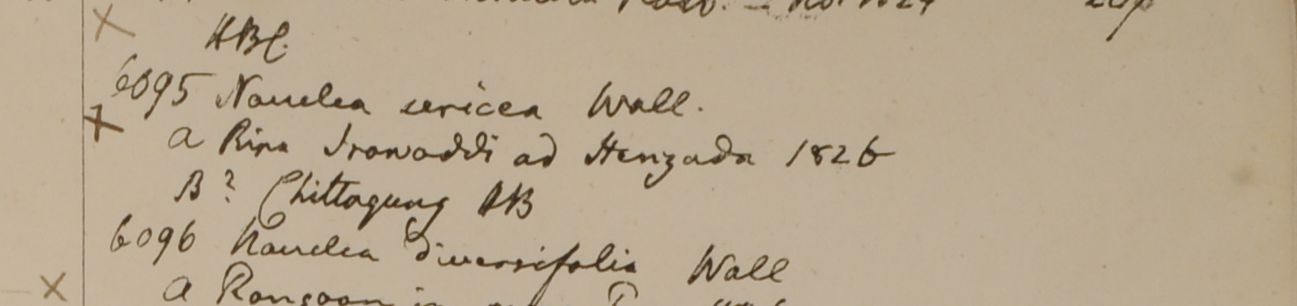 1824
HBC.
6095 Nauclea sericea Wall.
a Ripa Irawaddi ad Henzada 1826
B? Chittagung HB
6096 Nauclea diversifolia Wall
a Rangoon